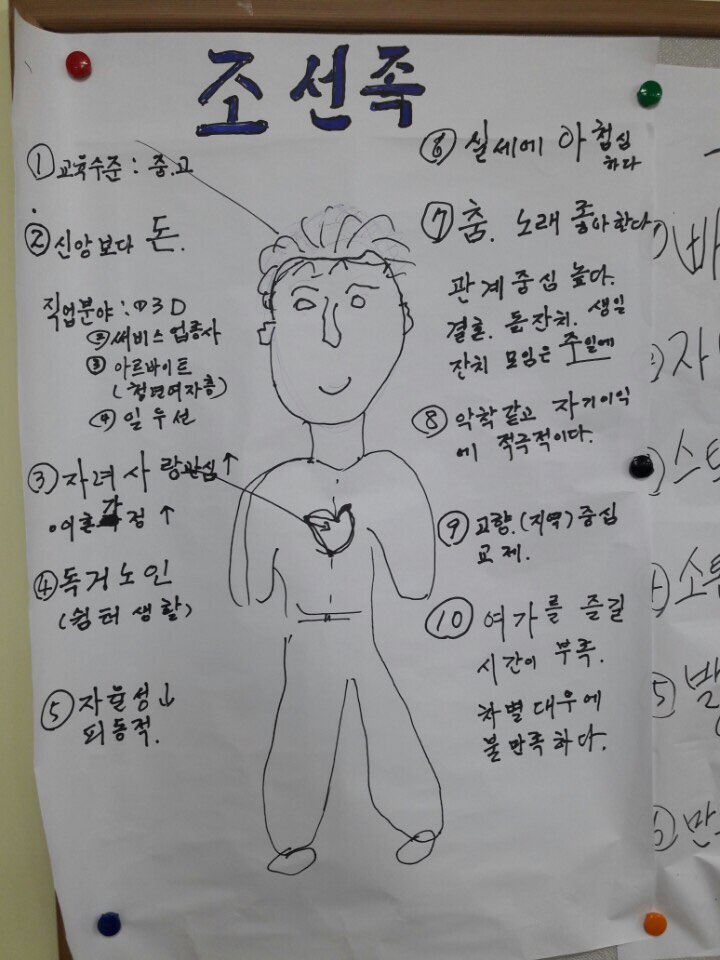 조선족
① 교육수준 : 중.고
② 신앙보다 돈.
직업분야 : ① 3D
② 써비스업종사
③ 아르바이트
(청년여자층)
④ 일 우선
③ 자녀사랑관심 ↑
· 이혼가정 ↑
④ 독거노인
(쉼터 생활)
⑤ 자율성 ↓
피동적.
⑥ 실세에 아첨심
하다
⑦ 춤. 노래 좋아한다
관계중심 높다.
결혼. 돌잔치. 생일
잔치 모임은 주일에
⑧ 악착같고 자기이익
에 적극적이다.
⑨ 고향.(지역)중심
교제.
⑩ 여가를 즐길
시간이 부족.
차별대우에
불만족하다.
빠
자
스트
소통
⑤ 발
⑥ 만